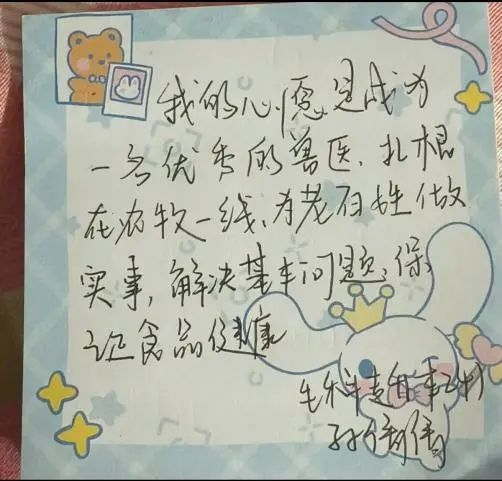 我的心愿是成为
一名优秀的兽医、扎根
在农牧一线、为老百姓做
实事，解决基本问题，保
证食品健康